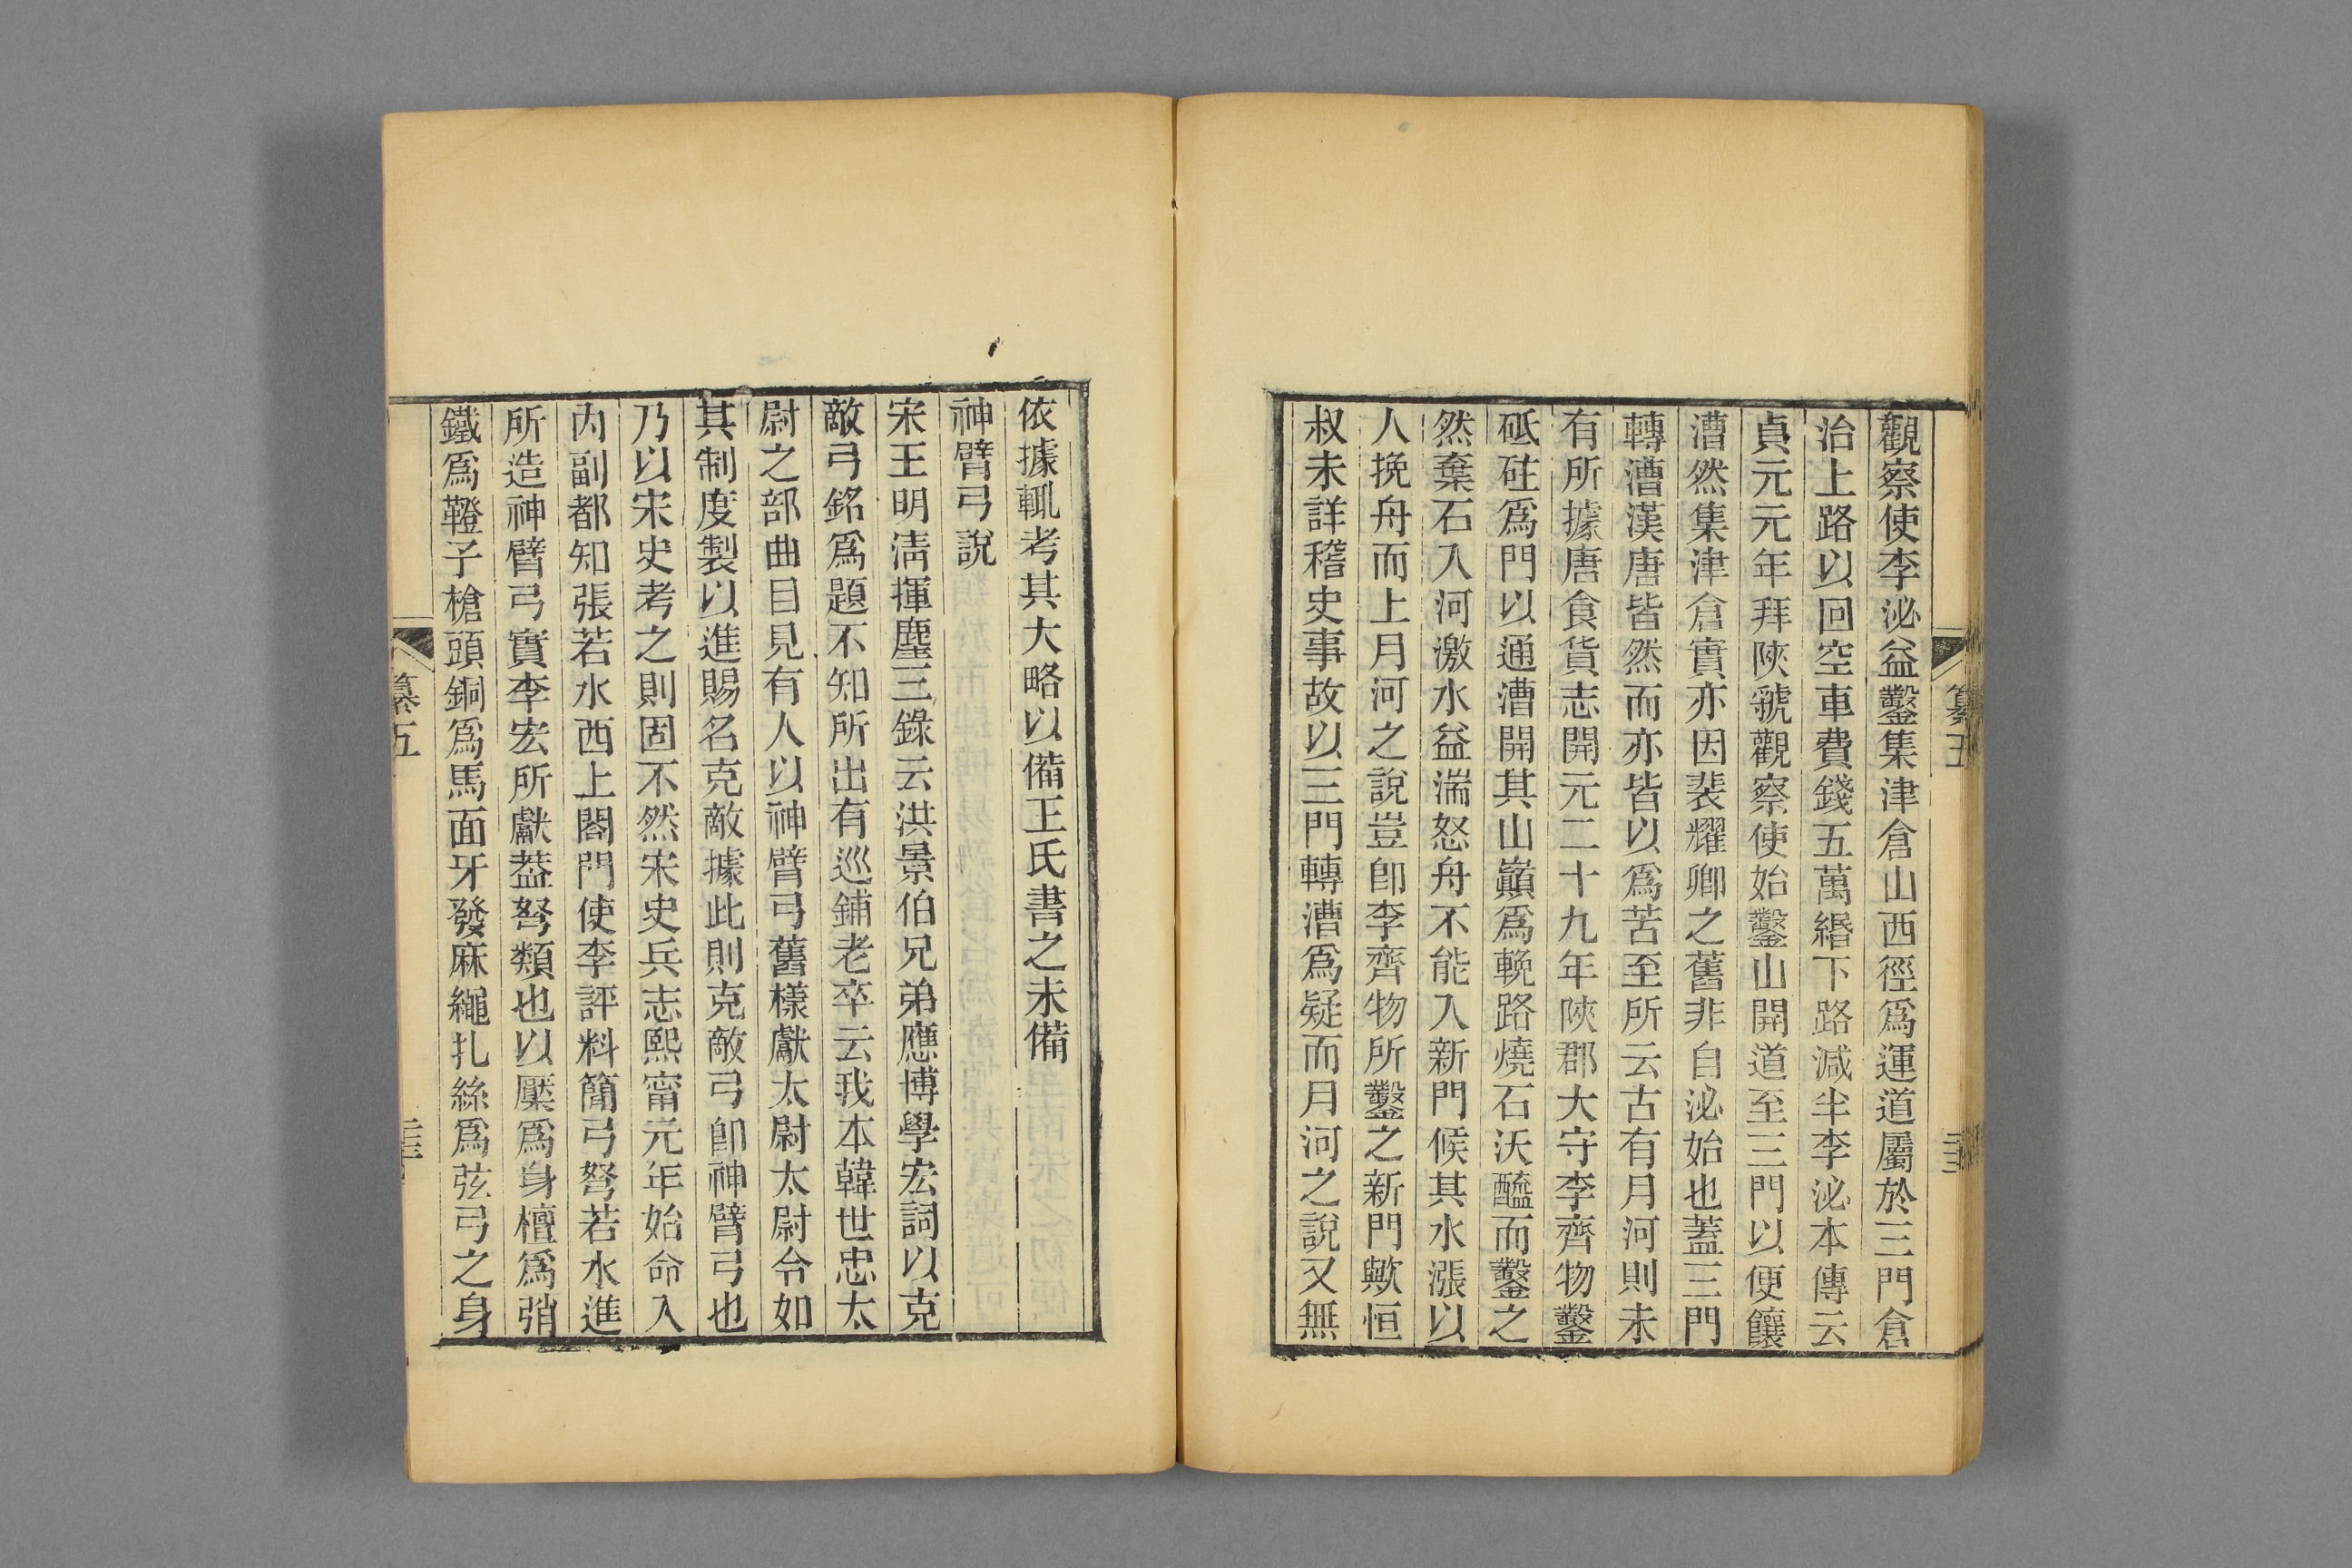 觀察使李泌益鑿集津倉山西徑爲運道屬於三門倉
治上路以回空車費錢五萬緡下路減半李泌本傳云
貞元元年拜陝虢觀察使始鑿山開道至三門以便饟
漕然集津倉實亦因裴耀卿之舊非自泌始也蓋三門
轉漕漢唐皆然而亦皆以爲苦至所云古有月河則未
有所據唐食貨志開元二十九年陝郡大守李齊物鑿
砥砫爲門以通漕開其山巔爲輓路燒石沃醯而鑿之
然棄石入河激水益湍怒舟不能入新門候其水漲以
人挽舟而上月河之說豈卽李齊物所鑿之新門歟恒
叔未詳稽史事故以三門轉漕爲疑而月河之說又無
依據輒考其大略以備王氏書之未備
神臂弓說
宋王明淸揮麈三錄云洪景伯兄弟應博學宏詞以克
敵弓銘爲題不知所出有巡鋪老卒云我本韓世忠太
尉之部曲目見有人以神臂弓舊樣獻太尉太尉令如
其制度製以進賜名克敵據此則克敵弓卽神臂弓也
乃以宋史考之則固不然宋史兵志熙甯元年始命入
內副都知張若水西上閤門使李評料簡弓弩若水進
所造神臂弓實李宏所獻葢弩類也以檿爲身檀爲弰
鐵爲鞾子槍頭銅爲馬面牙發麻繩扎絲爲弦弓之身
纂五